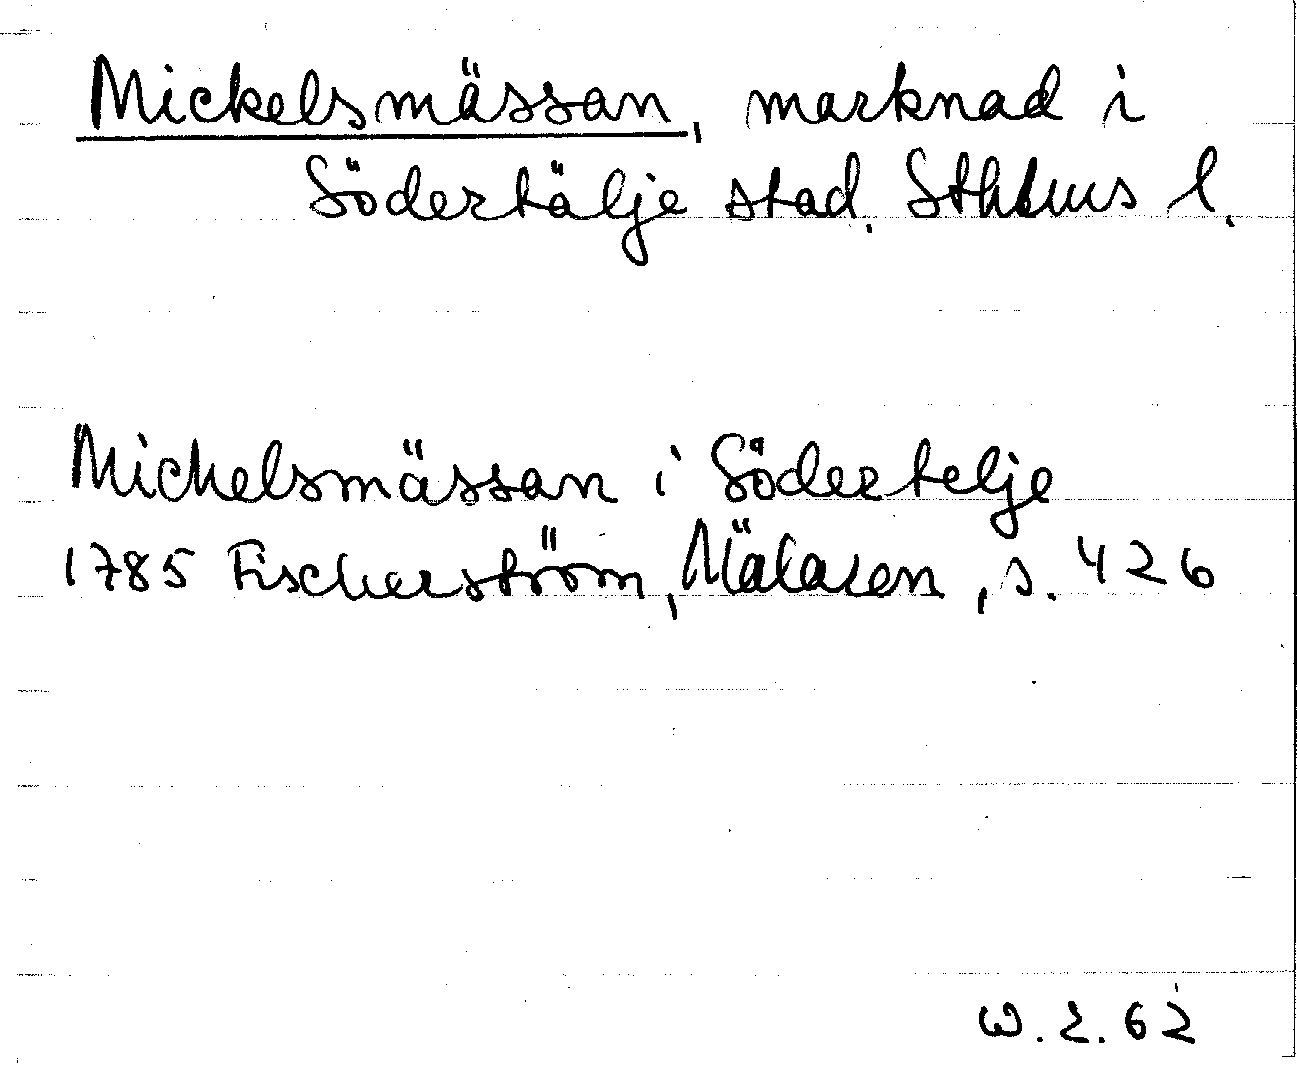 Mickelsmässan, marknad i
Södertälje stad. Sthlms l.
Mickelsmässan i Södertelje
1785 Fischerström, Mälaren, s. 426
W.E.62